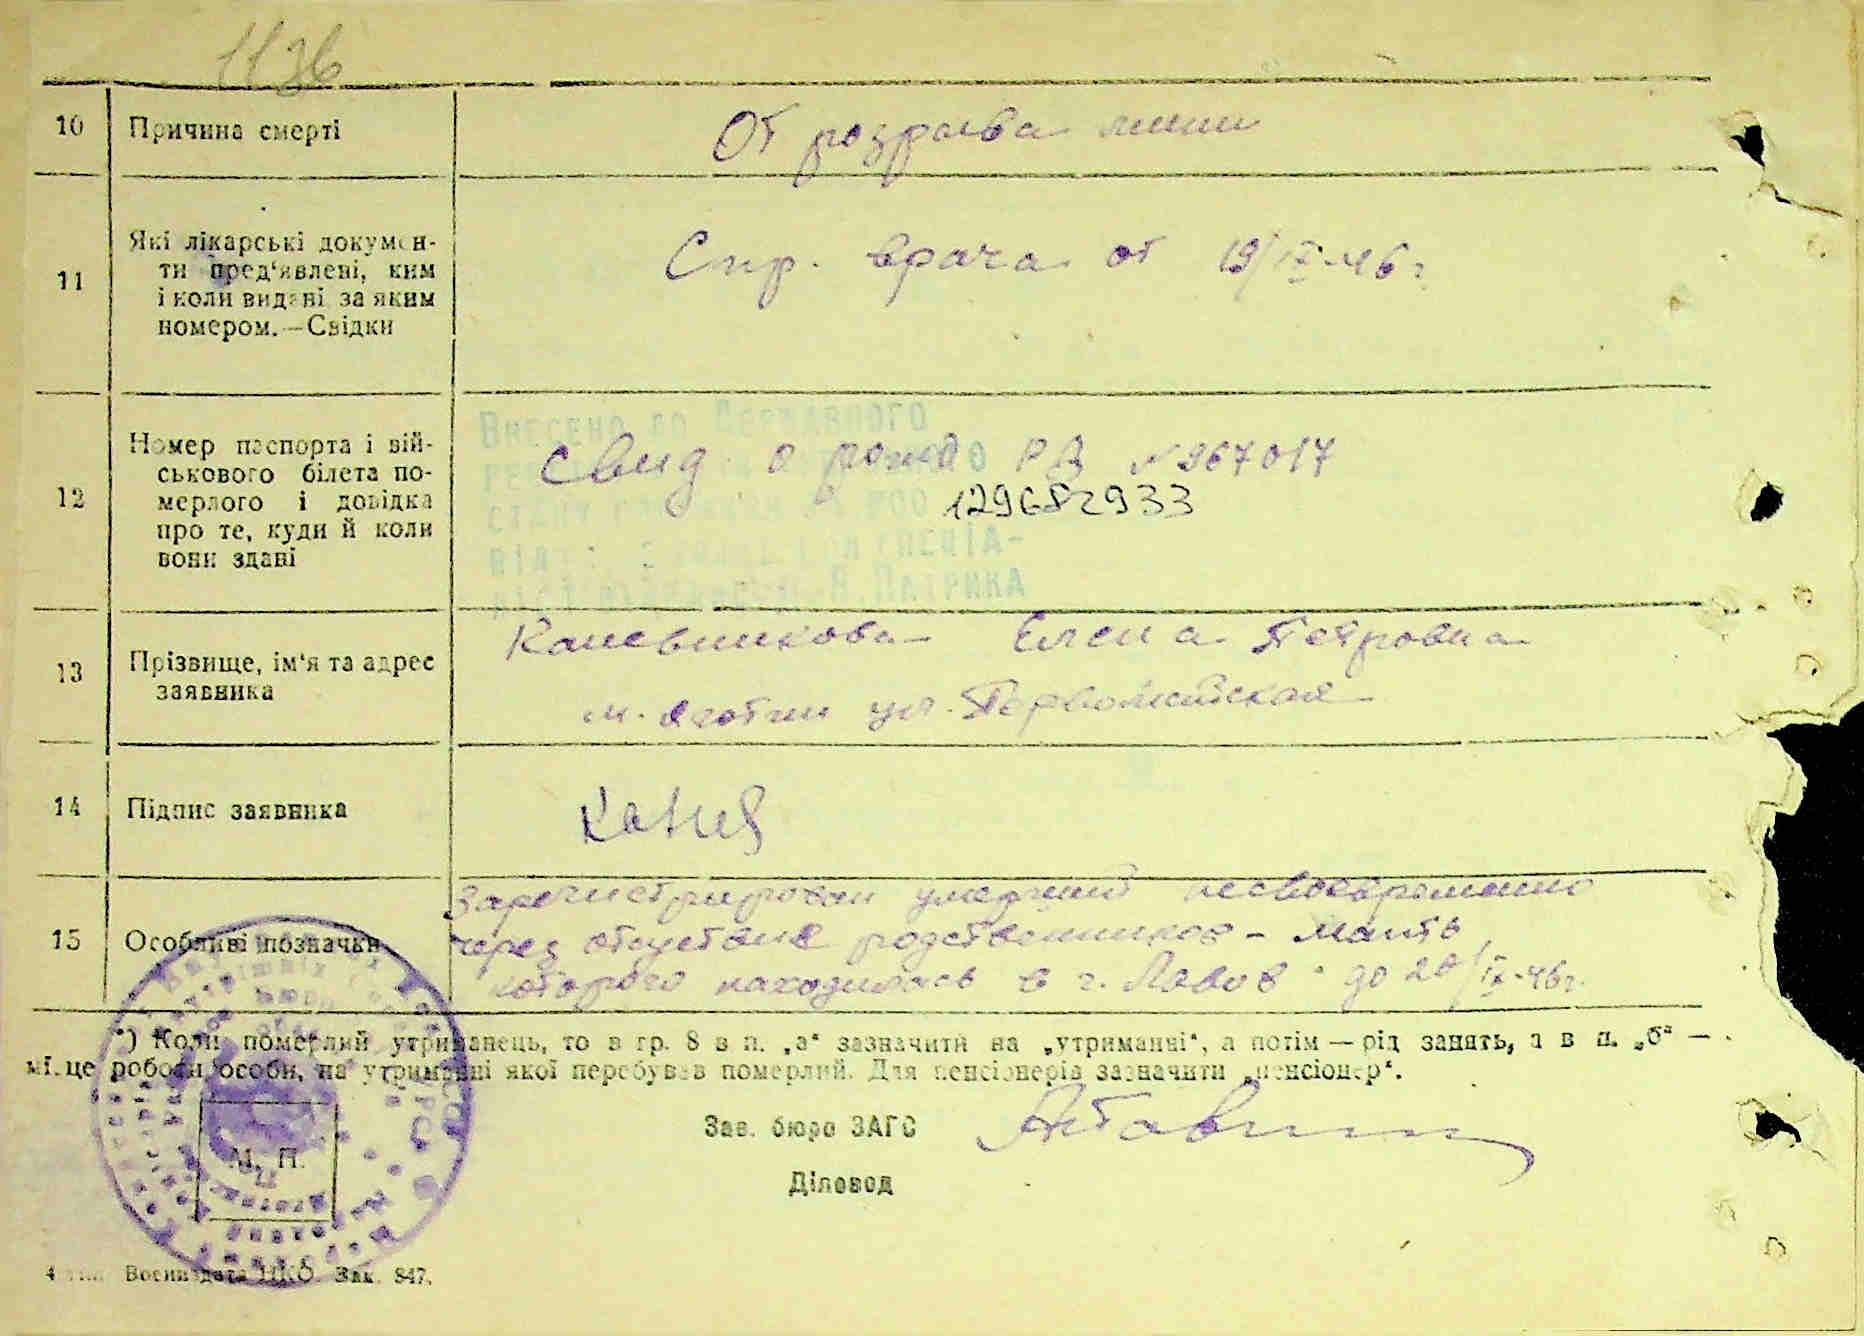 1136
10 Причина смерті От розрыва мины
11 Які лікарські докумен-
ти пред'явлені, ким
і коли видані за яким
номером.—Свідки
Спр. врача от 19/IX-46 г
12 Номер паспорта і вій-
ськового білета по-
мерлого і довідка
про те, куди й коли
вони здані
Внесено до Державного
Свид о рожд РД № 967017
129682933
В. Патрика
13 Прізвище, ім'я та адрес
заявника
Елена Петровна
м. Яготин ул. Первомайская
14 Підпис заявника
15 Особливі позначки
Зарегистрирован умерший несвоевременно
через отсуствие родственников - мать
которого находилась в г. Львов до 20/IX-46г.
*) Коли померлий утриманець, то в гр. 8 в п. „а“ зазначити на „утриманні“, а потім — рід занять, а в п. „б“ —
місце роботи особи, на утриманні якої перебував померлий. Для пенсіонерів зазначити „пенсіонер“.
Зав. бюро ЗАГС
Діловод
М. П.
Воениздата НКО Зак. 847.